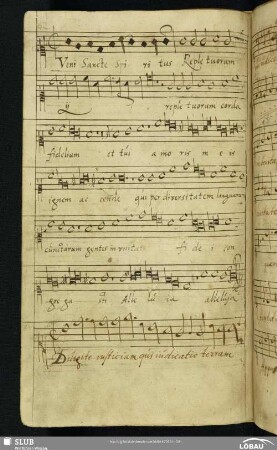 Veni Sancte Spi ri tus Reple tuorum
reple tuorum corda
fidelium et tui a mo ris in e is
ignem ac cende qui per diversitatem linguarum
cunctarum gentes in unitate fi de i con
gre ga sti Alle lu ia alleluia
Diligite iusticiam qui iudicatis terram
SLUB
Wir führen Wissen.
LÖBAU